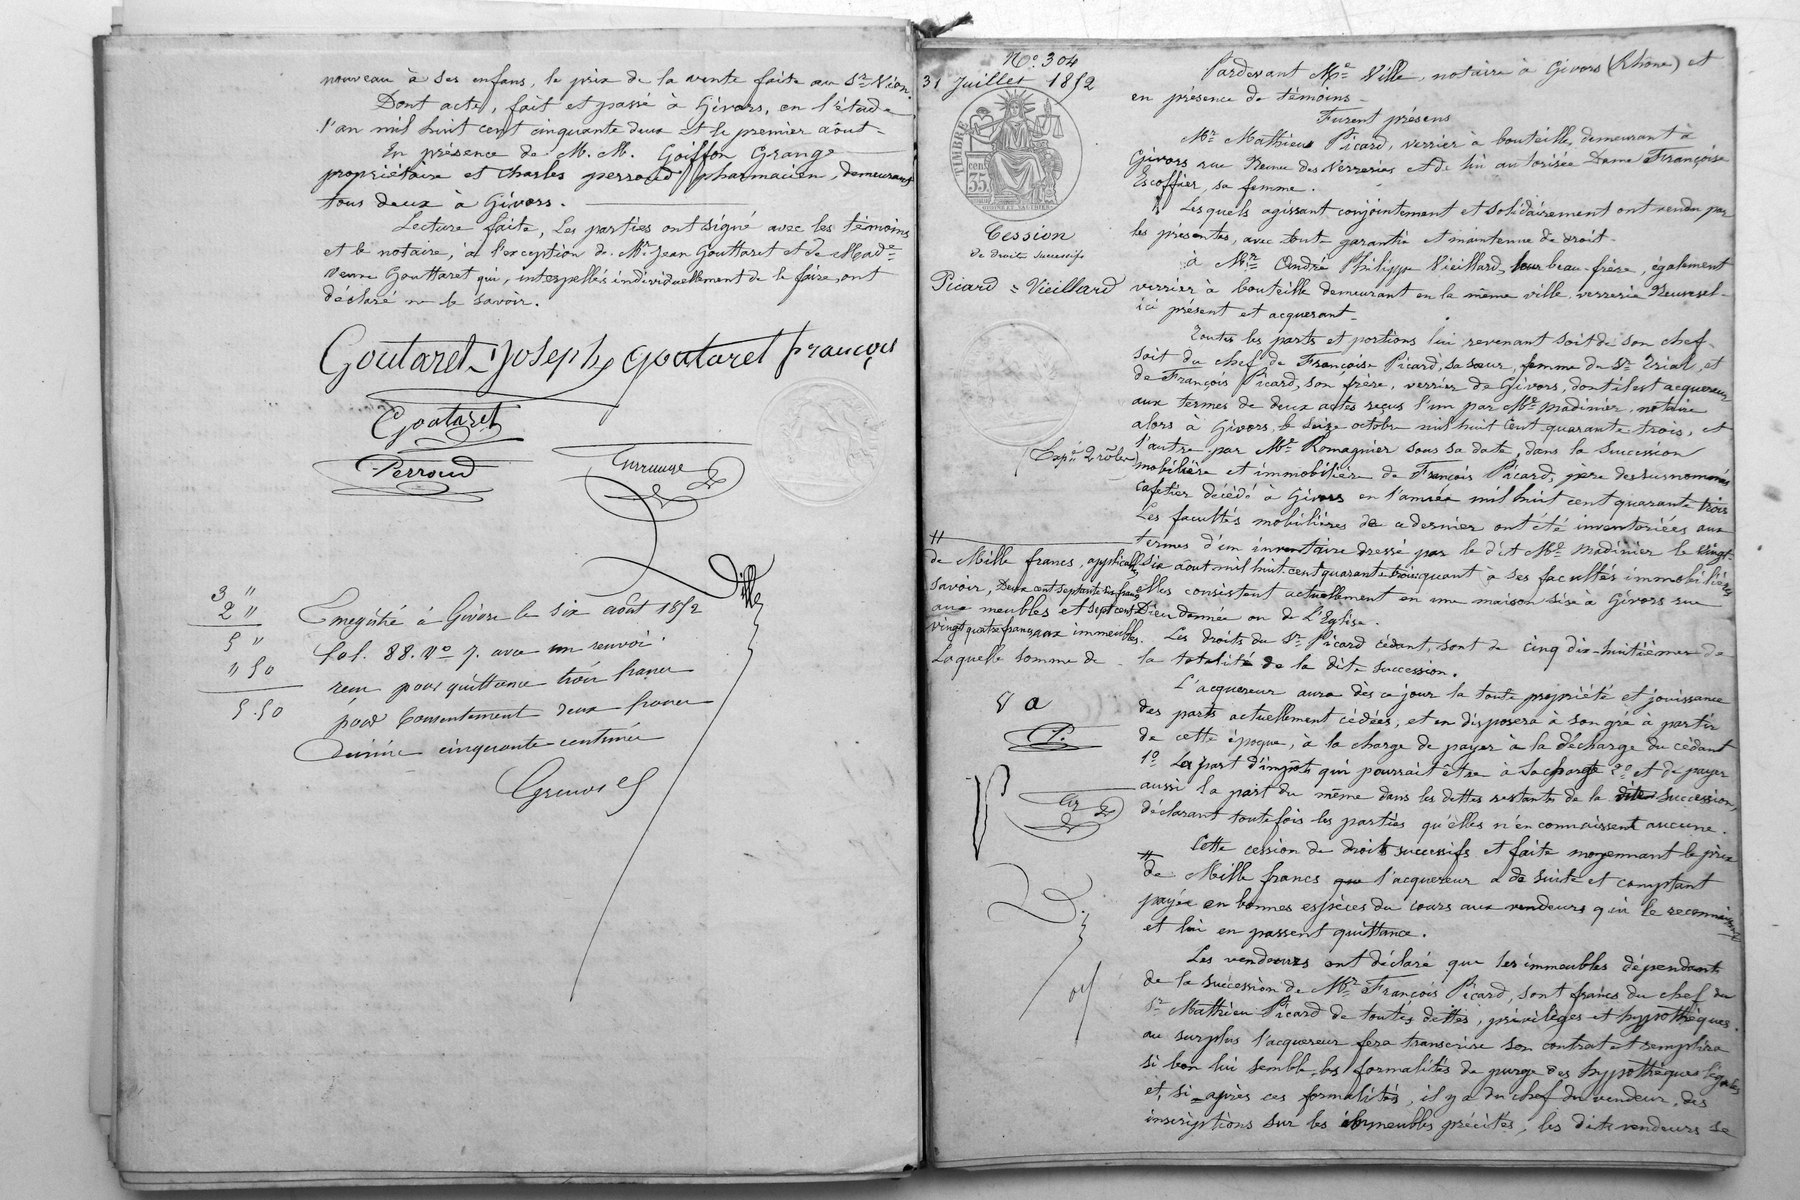 nouveau à ses enfans, le prix de la vente faite au Sr Néon.
Dont acte, fait et passé à Givors, en l'étude
l'an mil huit cent cinquante deux et le premier août.
En présence de M. M. Goiffon Grange
propriétaire et Charles Perroud pharmacien, demeurant
tous deux à Givors.
Lecture faite, Les parties ont signé avec les témoins
et le notaire, à l'exception de Mr Jean Gouttaret et de Made
veuve Gouttaret qui, interpellés individuellement de le faire, ont
déclaré ne le savoir.
Goutaret Joseph goutaret françois
Goutaret
Perroud
Ville
3 "
2 "
5 "
" 50
5.50
Enregistré à Givors le six août 1852
fol. 88. Vo 7. avec un renvoi
reçu pour quittance trois francs
pour Consentement deux francs
Décime cinquante centimes
No 304
31 Juillet 1852
TIMBRE
35
Cession
de droits successifs
Picard = Vieillard
(Expé 2 rôles)
Pardevant Me Ville, notaire à Givors (Rhône) et
en présence de témoins
Furent présens
Mr Mathieu Picard, verrier à bouteille, demeurant à
Givors rue Neuve des Verreries et de lui autorisée Dame Françoise
Escoffier, sa femme.
Lesquels agissant conjointement et solidairement ont vendu par
les présentes, avec toute garantie et maintenue de droit.
à Mr André Philippe Vieillard, leur beau-frère, également
verrier à bouteille demeurant en la même ville, verrerie Neuvesel
ici présent et acquerant
Toutes les parts et portions lui revenant soit de son chef
soit du chef de Françoise Picard, sa sœur, femme du Sr Trial, et
de François Picard, son frère, verrier de Givors, dont il est acquereur
aux termes de deux actes reçus l'un par Me Madinier, notaire
alors à Givors, le seize octobre mil huit cent quarante trois, et
l'autre par Me Romagnier sous sa date, dans la succession
mobilière et immobilière de François Picard, père des susnommés
cafetier décédé à Givors en l'année mil huit cent quarante trois
Les facultés mobilières de ce dernier ont été inventoriées aux
termes d'un inventaire dressé par le dit Me Madinier le vingt-
six août mil huit cent quarante trois: quant à ses facultés immobilières
elles consistent actuellement en une maison sise à Givors rue
Dieu donnée ou de L'Eglise.
Les droits du Sr Picard cédant, sont de cinq dix-huitièmes de
la totalité de la dite succession.
de Mille francs, applicables
savoir, Deux cent septante six francs
aux meubles et sept cent
vingt quatre francs aux immeubles.
Laquelle somme de
L'acquereur aura dès ce jour la toute propriété et jouissance
des parts actuellement cédées, et en disposera à son gré à partir
de cette époque, à la charge de payer à la décharge du cédant
1o La part d'impôts qui pourrait être à sa charge 2o et de payer
aussi la part du même dans les dettes restants de la dite succession,
déclarant toutefois les parties qu'elles n'en connaissent aucune.
Cette cession de droits successifs et faite moyennant le prix
de Mille francs que l'acquereur a de suite et comptant
payée en bonnes espèces du cours aux vendeurs qui le reconnaissent
et lui en passent quittance.
Les vendeurs ont déclaré que les immeubles dépendant
de la succession de Mr François Picard, sont francs du chef du
Sr Mathieu Picard de toutes dettes, privilèges et hypothèques.
au surplus l'acquereur fera transcrire son contrat et remplira
si bon lui semble les formalités de purge des hypothèques légales
et, si après ces formalités, il y a du chef du vendeur, des
inscriptions sur les immeubles précités, les dits vendeurs se